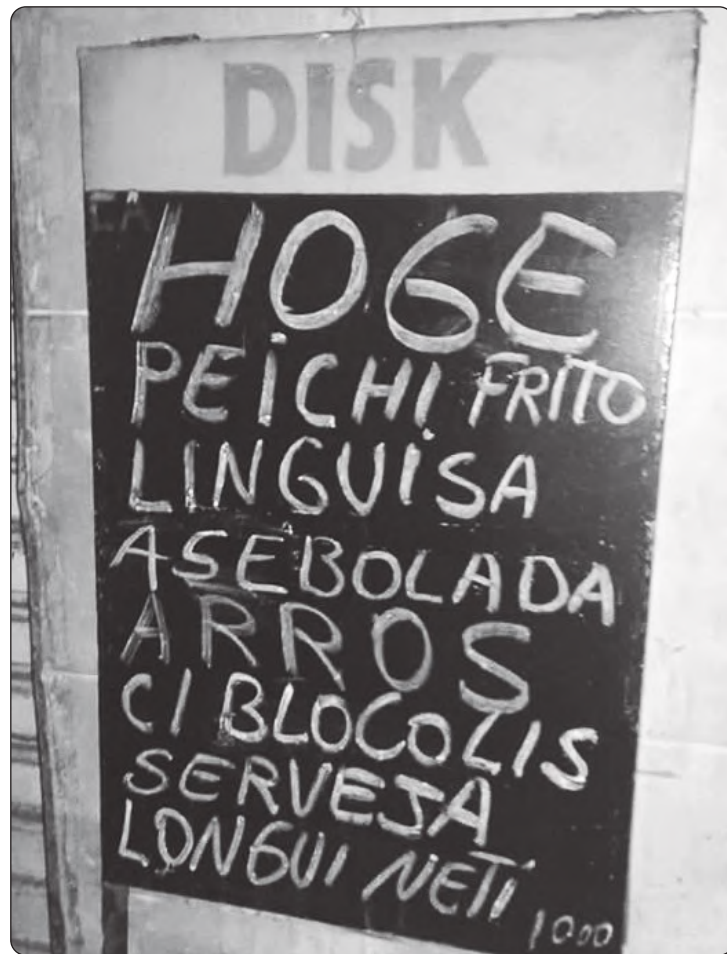 DISK
HOGE
PEICHI FRITO
LINGUISA
ASEBOLADA
ARROS
C/ BLOCOLIS
SERVEJA
LONGUI NETI
10.00